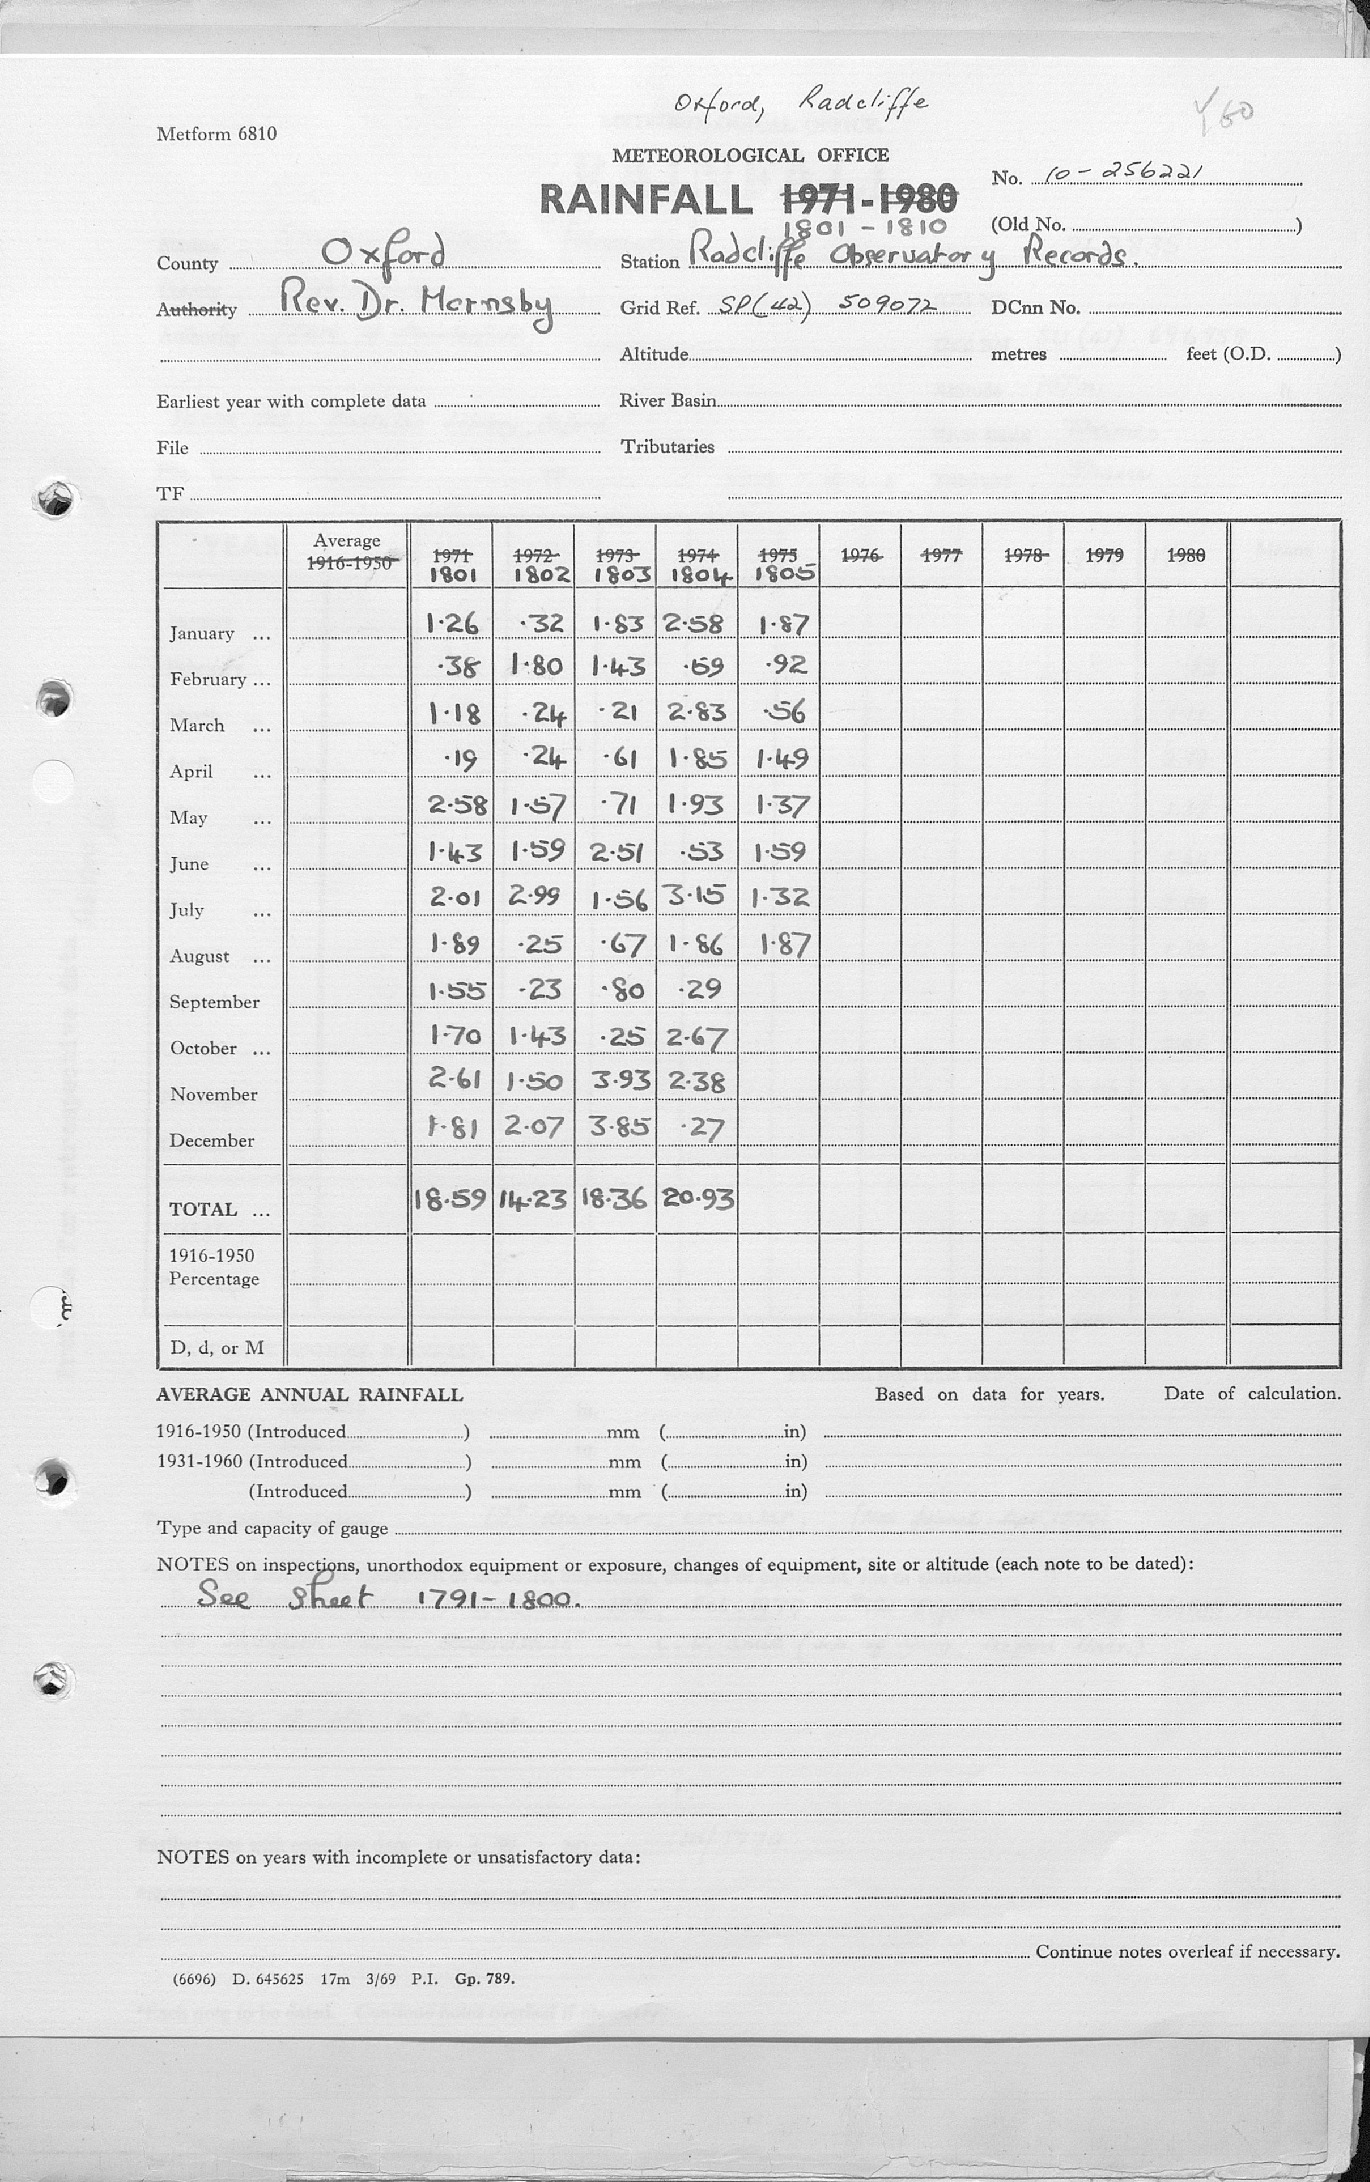 Oxford, Radcliffe
Y60
Metform 6810
METEOROLOGICAL OFFICE
RAINFALL 1971-1980
1801 - 1810
No. 10 - 256221
(Old No. )
County Oxford
Station Radcliffe Observatory Records.
Authority Rev. Dr. Hornsby
Grid Ref. SP(42) 509072 DCnn No.
Altitude metres feet (O.D. )
Earliest year with complete data River Basin
File Tributaries
TF
Average
1916-1950 1971 1972 1973 1974 1975 1976 1977 1978 1979 1980
1801 1802 1803 1804 1805
January ... 1.26 .32 1.83 2.58 1.87
February ... .38 1.80 1.43 .59 .92
March ... 1.18 .24 .21 2.83 .56
April ... .19 .24 .61 1.85 1.49
May ... 2.58 1.57 .71 1.93 1.37
June ... 1.43 1.59 2.51 .53 1.59
July ... 2.01 2.99 1.56 3.15 1.32
August ... 1.89 .25 .67 1.86 1.87
September 1.55 .23 .80 .29
October ... 1.70 1.43 .25 2.67
November 2.61 1.50 3.93 2.38
December 1.81 2.07 3.85 .27
TOTAL ... 18.59 14.23 18.36 20.93
1916-1950
Percentage
D, d, or M
AVERAGE ANNUAL RAINFALL Based on data for years. Date of calculation.
1916-1950 (Introduced ) mm ( in)
1931-1960 (Introduced ) mm ( in)
(Introduced ) mm ( in)
Type and capacity of gauge
NOTES on inspections, unorthodox equipment or exposure, changes of equipment, site or altitude (each note to be dated):
See sheet 1791-1800.
NOTES on years with incomplete or unsatisfactory data:
Continue notes overleaf if necessary.
(6696) D. 645625 17m 3/69 P.I. Gp. 789.